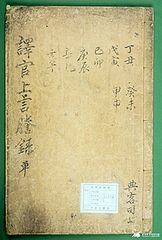 譯官上言謄錄 單
丁丑
戊寅
己卯
庚辰
辛巳
壬午
癸未
甲申
典客司上